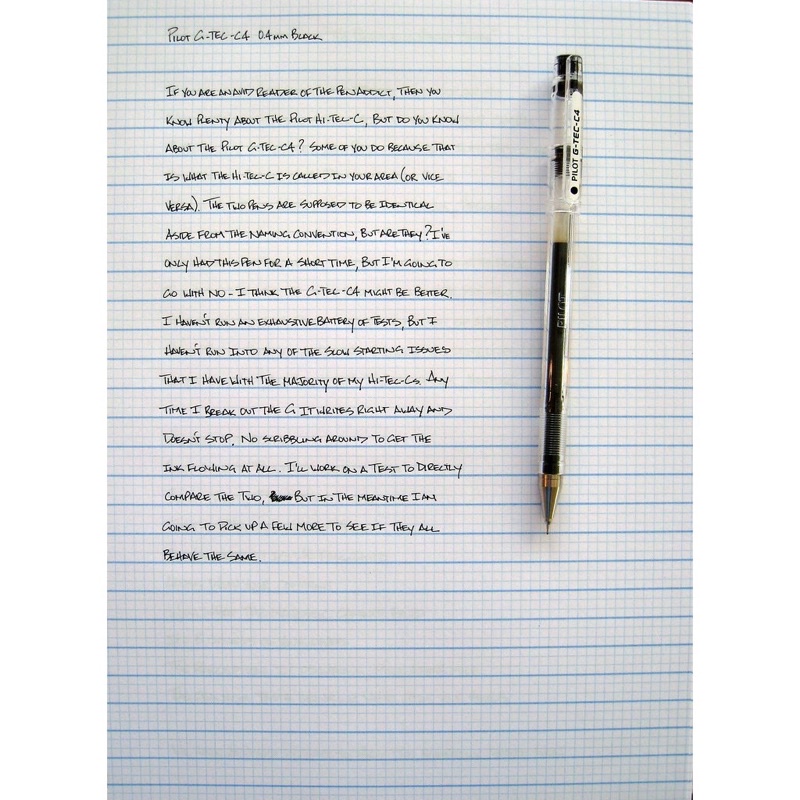 PILOT G-TEC-C4 0.4MM BLACK
IF YOU ARE AN AVID READER OF THE PEN ADDICT, THEN YOU
KNOW PLENTY ABOUT THE PILOT HI-TEC-C, BUT DO YOU KNOW
ABOUT THE PILOT G-TEC-C4? SOME OF YOU DO BECAUSE THAT
IS WHAT THE HI-TEC-C IS CALLED IN YOUR AREA (OR VICE
VERSA). THE TWO PENS ARE SUPPOSED TO BE IDENTICAL
ASIDE FROM THE NAMING CONVENTION, BUT ARE THEY? I'VE
ONLY HAD THIS PEN FOR A SHORT TIME, BUT I'M GOING TO
GO WITH NO - I THINK THE G-TEC-C4 MIGHT BE BETTER.
I HAVEN'T RUN AN EXHAUSTIVE BATTERY OF TESTS, BUT I
HAVEN'T RUN INTO ANY OF THE SLOW STARTING ISSUES
THAT I HAVE WITH THE MAJORITY OF MY HI-TEC-CS. ANY
TIME I BREAK OUT THE G IT WRITES RIGHT AWAY AND
DOESN'T STOP. NO SCRIBBLING AROUND TO GET THE
INK FLOWING AT ALL. I'LL WORK ON A TEST TO DIRECTLY
COMPARE THE TWO, BUT IN THE MEANTIME I AM
GOING TO PICK UP A FEW MORE TO SEE IF THEY ALL
BEHAVE THE SAME.
PILOT G-TEC-C4
PILOT